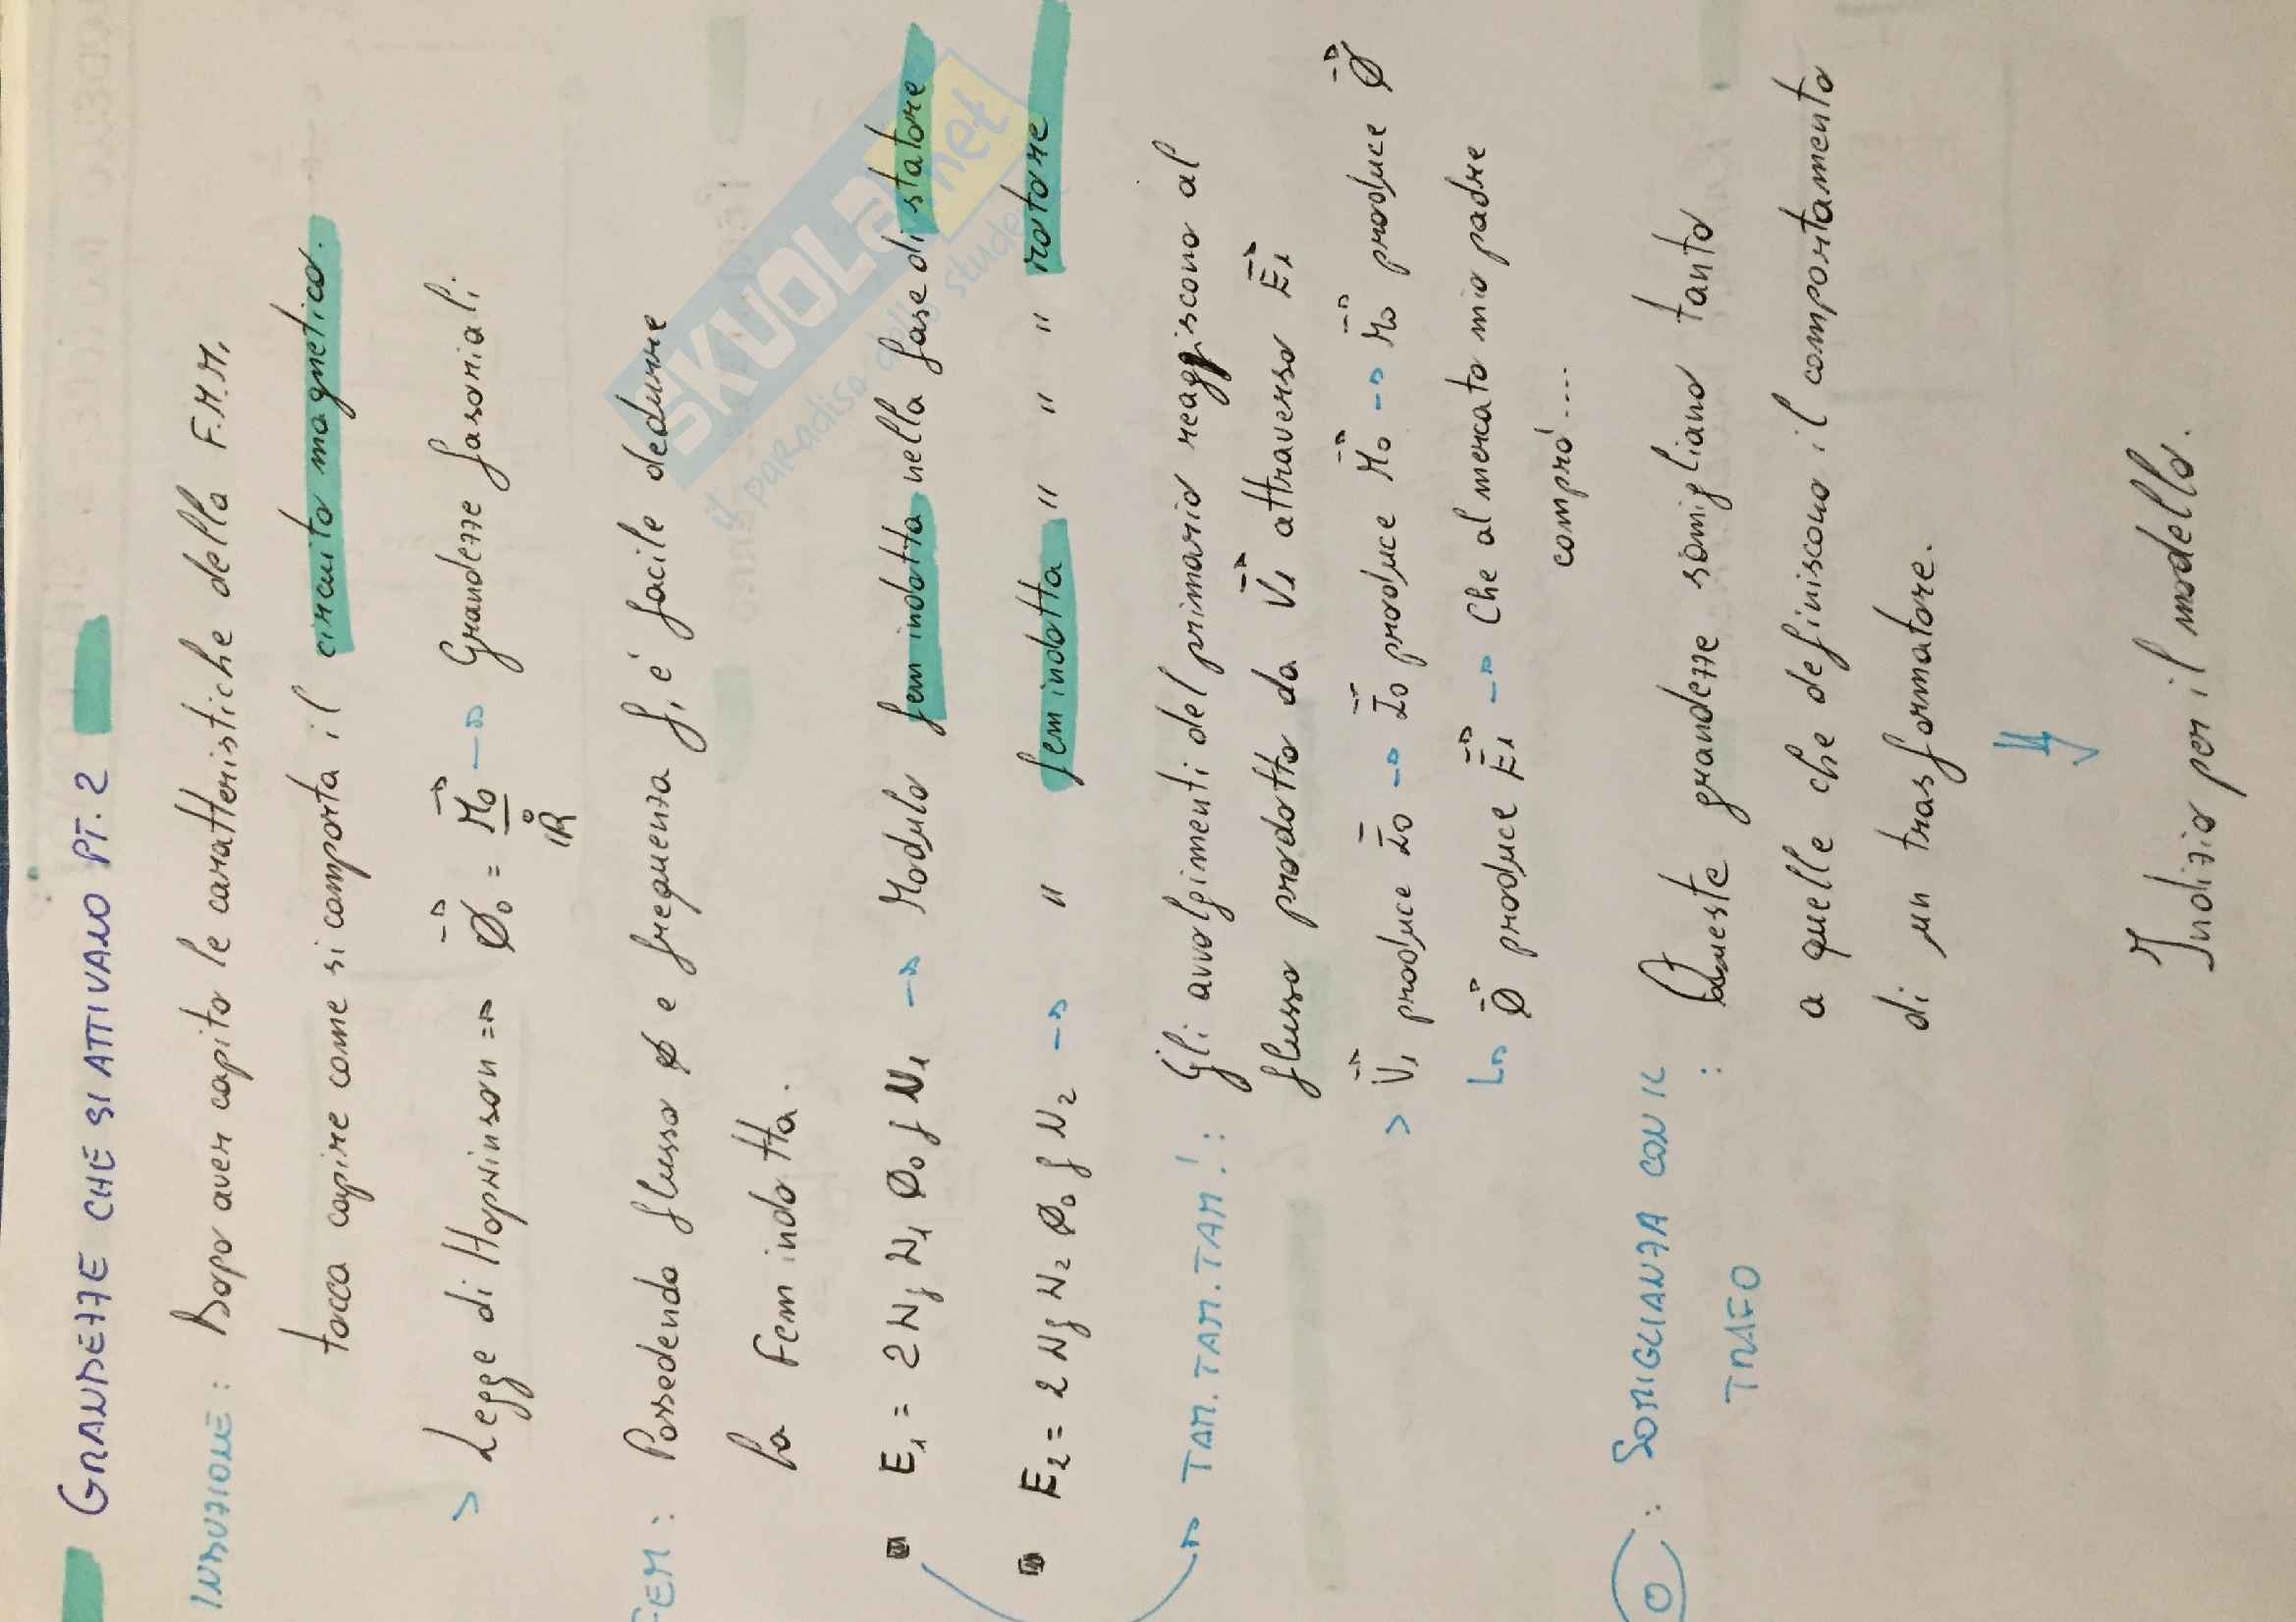 GRANDEZZE CHE SI ATTIVANO PT. 2
INDUZIONE: Dopo aver capito le caratteristiche della F.M.M,
tocca capire come si comporta il circuito magnetico.
> Legge di Hopkinson => Φ₀ = M₀/ℝ → Grandezze fasoriali
FEM: Possedendo flusso Φ e frequenza f, è facile dedurre
la Fem indotta.
E₁ = 2 Kf K₁ Φ₀ f N₁ → Modulo fem indotta nella fase di statore
E₂ = 2 Kf K₂ Φ₀ f N₂ → " fem indotta " " " rotore
→ TAM.TAM.TAM!: Gli avvolgimenti del primario reaggiscono al
flusso prodotto da V₁ attraverso E₁
> V₁ produce I₀ → I₀ produce M₀ → M₀ produce Φ
↳ Φ produce E₁ → Che al mercato mio padre
comprò....
: SOMIGLIANZA CON IL TRAFO : Queste grandezze somigliano tanto
a quelle che definiscono il comportamento
di un trasformatore.
⇓
Indizio per il modello.
SKUOLA.net
il paradiso dello studente